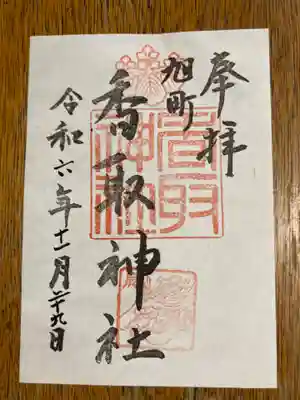 奉拝
旭町
香取神社
令和六年十一月二十九日
香取神社